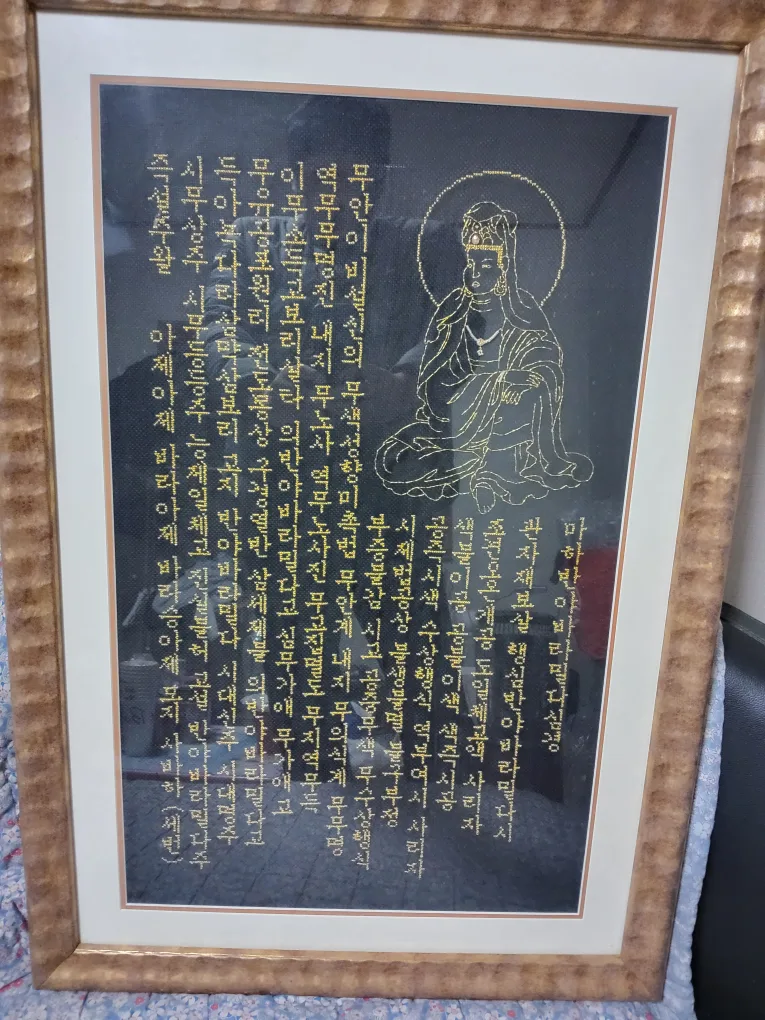 마하반야바라밀다심경
관자재보살 행심반야바라밀다시
조견오온개공 도일체고액 사리자
색불이공 공불이색 색즉시공
공즉시색 수상행식 역부여시 사리자
시제법공상 불생불멸 불구부정
부증불감 시고 공중무색 무수상행식
무안이비설신의 무색성향미촉법 무안계 내지 무의식계 무무명
역무무명진 내지 무노사 역무노사진 무고집멸도 무지역무득
이무소득고보리살타 의반야바라밀다고심무가애 무가애고
무유공포원리 전도몽상 구경열반 삼세제불 의반야바라밀다고
득아뇩다라삼먁삼보리 고지 반야바라밀다 시대신주 시대명주
시무상주 시무등등주 능제일체고 진실불허 고설 반야바라밀다주
즉설주왈 아제아제 바라아제 바라승아제 모지 사바하 (세번)